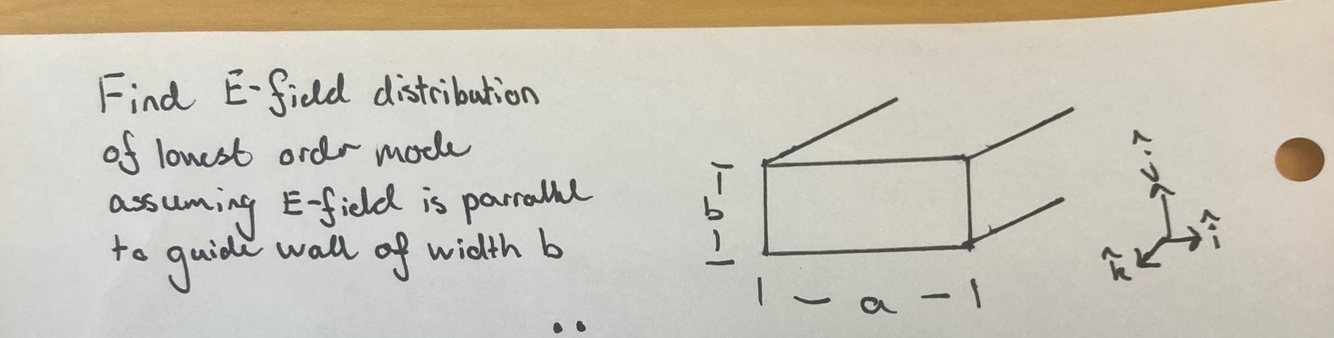 Find E-field distribution
of lowest order mode
assuming E-field is parrallel
to guide wall of width b
b
a
ĵ
î
k̂